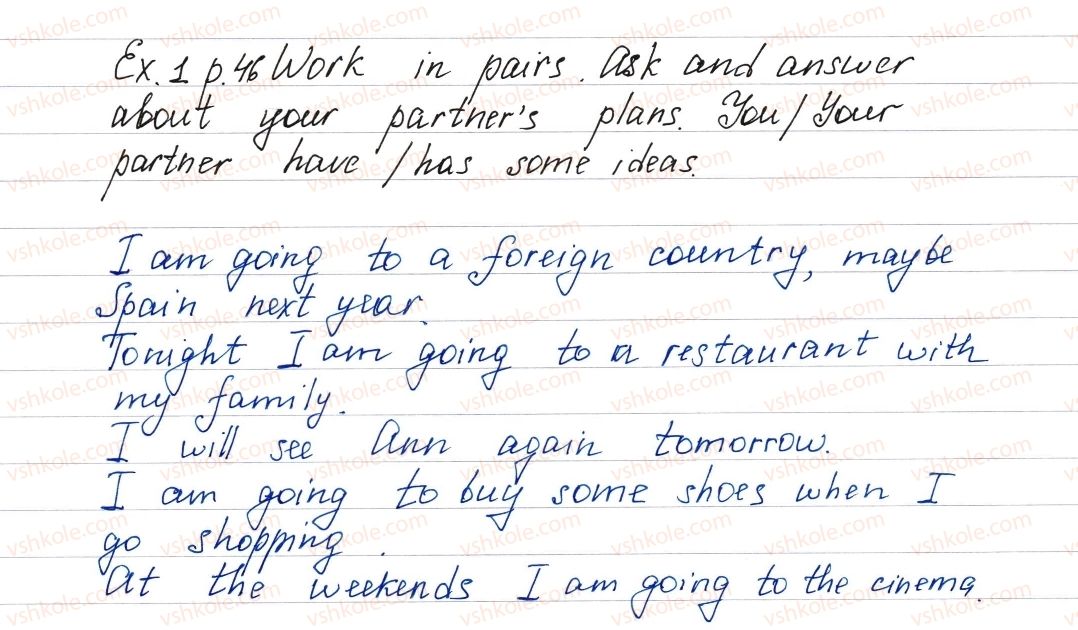 Ex. 1 p. 46 Work in pairs. Ask and answer
about your partner's plans. You/Your
partner have / has some ideas.
I am going to a foreign country, maybe
Spain next year.
Tonight I am going to a restaurant with
my family.
I will see Ann again tomorrow.
I am going to buy some shoes when I
go shopping.
At the weekends I am going to the cinema.